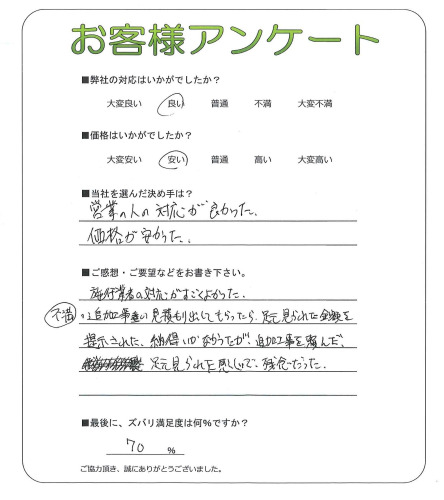 お客様アンケート
■弊社の対応はいかがでしたか？
大変良い 良い 普通 不満 大変不満
■価格はいかがでしたか？
大変安い 安い 普通 高い 大変高い
■当社を選んだ決め手は？
営業の人の対応が良かった。
価格が安かった。
■ご感想・ご要望などをお書き下さい。
施行業者の対応がすごくよかった。
不満 追加工事の見積もり出してもらったら、足元見られた金額を
提示された、納得いかなかったが、追加工事を頼んだ、
足元見られた感じで、残念だった。
■最後に、ズバリ満足度は何％ですか？
70 %
ご協力頂き、誠にありがとうございました。